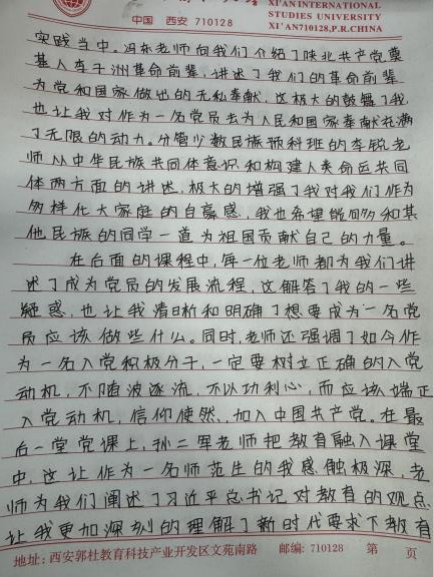 XI'AN INTERNATIONAL
STUDIES UNIVERSITY
中国 西安 710128 XI'AN710128,P.R.CHINA
实践当中。冯东老师向我们介绍了陕北共产党奠
基人李子洲革命前辈，讲述了我们的革命前辈
为党和国家做出的无私奉献，这极大的鼓舞了我，
也让我对作为一名党员去为人民和国家奉献充满
了无限的动力。分管少数民族预科班的李锐老
师从中华民族共同体意识和构建人类命运共同
体两方面的讲述，极大的增强了我对我们作为
多样化大家庭的自豪感，我也希望能同和其
他民族的同学一道为祖国贡献自己的力量。
在后面的课程中，每一位老师都为我们讲
述了成为党员的发展流程，这解答了我的一些
疑惑，也让我清晰和明确了想要成为一名党
员应该做些什么。同时，老师还强调了如今作
为一名入党积极分子，一定要树立正确的入党
动机，不随波逐流，不以功利心，而应该端正
入党动机，信仰使然，加入中国共产党。在最
后一堂党课上，孙二军老师把教育融入课堂
中，这让作为一名师范生的我感触极深，老
师为我们阐述了习近平总书记对教育的观点，
让我更加深刻的理解了新时代要求下教育
地址：西安郭杜教育科技产业开发区文苑南路 邮编：710128 第 页